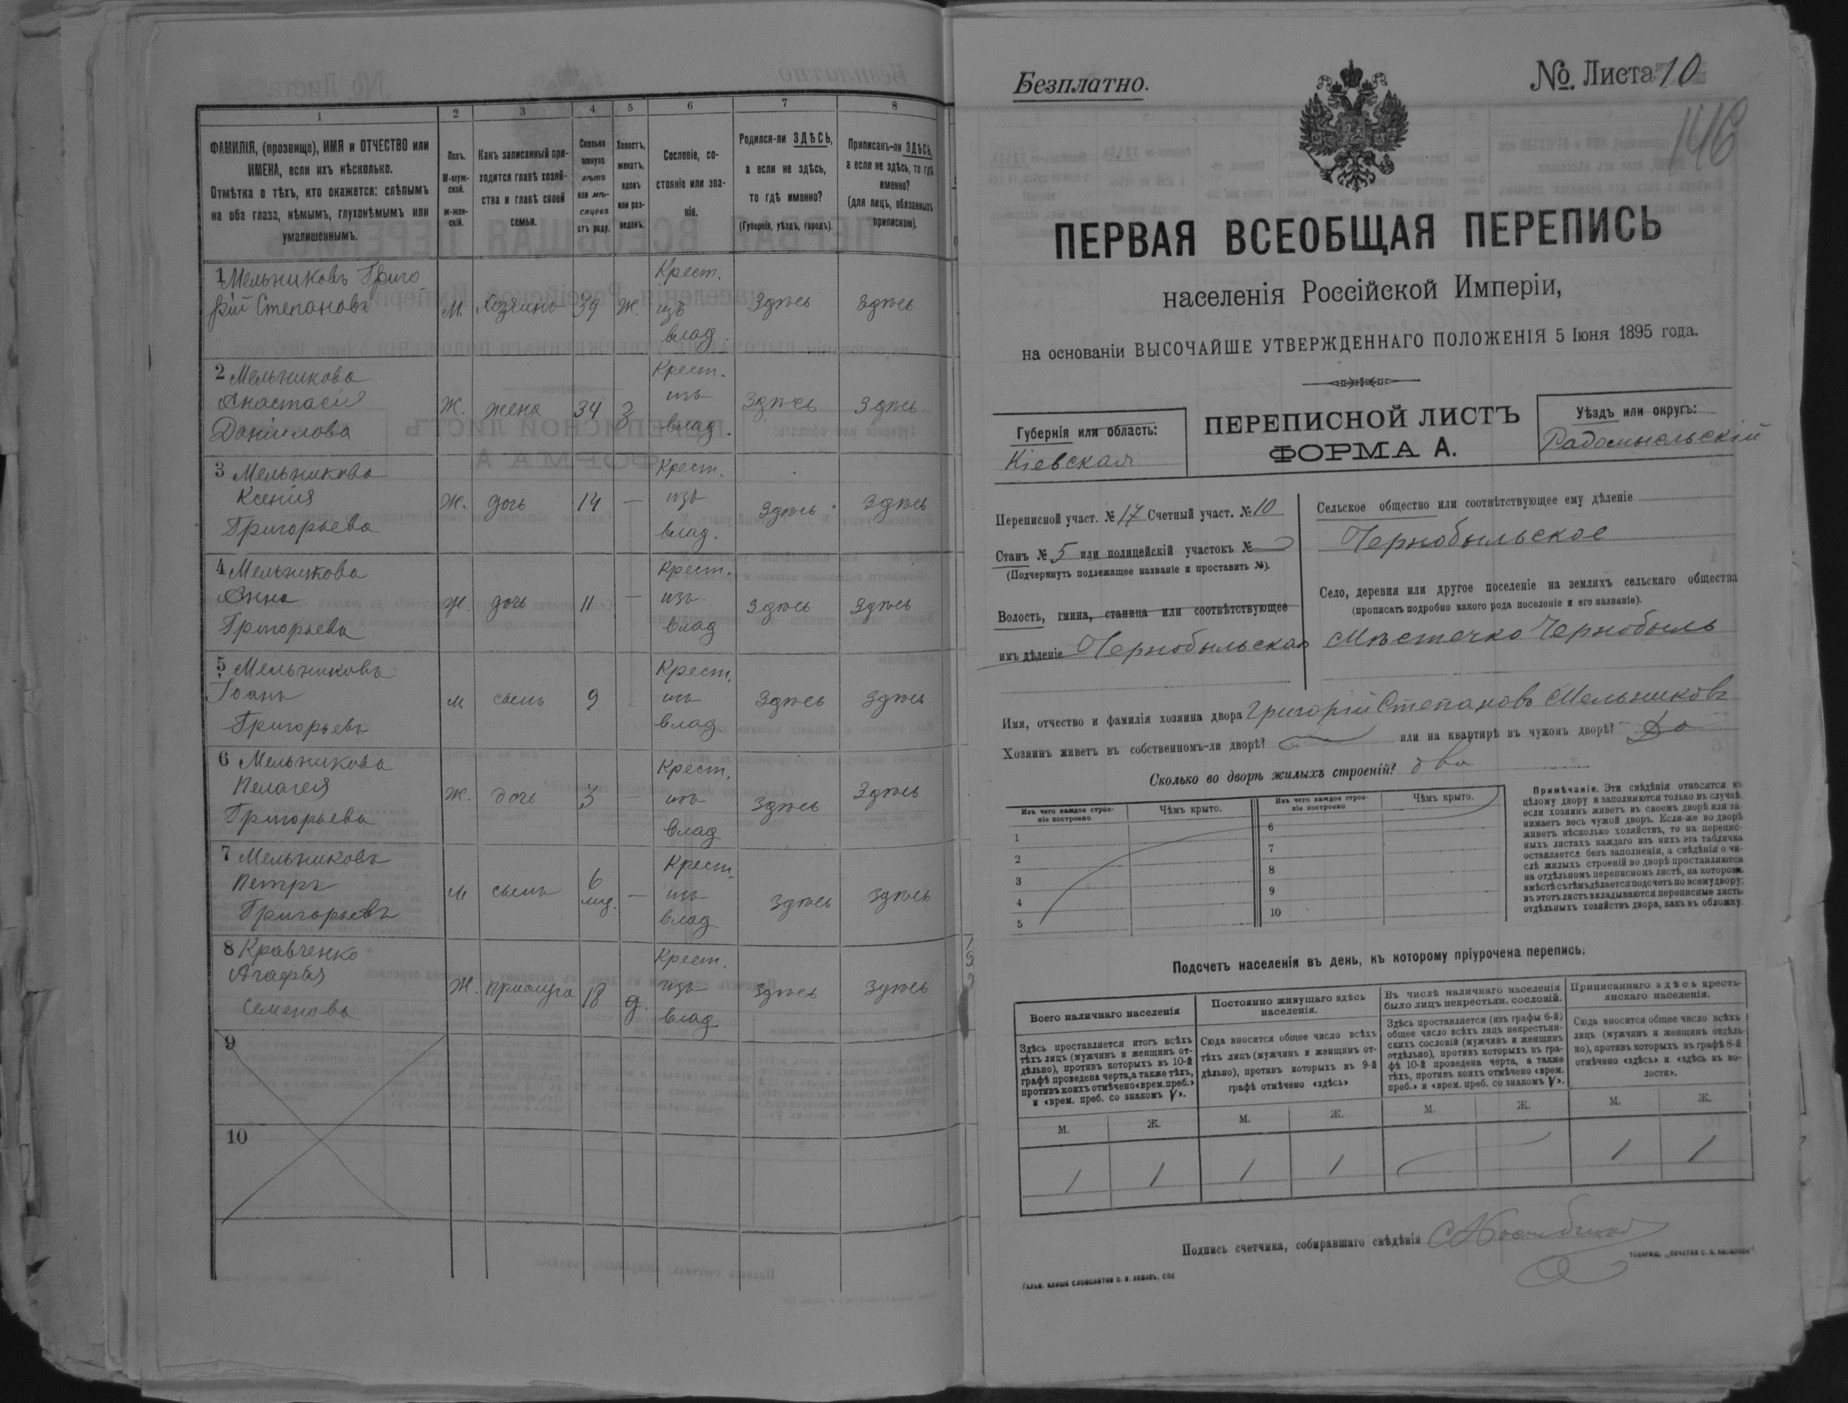 1
2
3
4
5
6
7
8
ФАМИЛІЯ, (прозвище), ИМЯ и ОТЧЕСТВО или
ИМЕНА, если ихъ нѣсколько.
Отмѣтка о тѣхъ, кто окажется: слѣпымъ
на оба глаза, нѣмымъ, глухонѣмымъ или
умалишеннымъ.
Полъ.
М-муж-
ской.
Ж-жен-
скій.
Какъ записанный при-
ходится главѣ хозяй-
ства и главѣ своей
семьи.
Сколько
минуло
лѣтъ
или мѣ-
сяцевъ
отъ роду.
Холостъ,
женатъ,
вдовъ
или раз-
веденъ.
Сословіе, со-
стояніе или зва-
ніе.
Родился-ли ЗДѢСЬ,
а если не здѣсь,
то гдѣ именно?
(Губернія, уѣздъ, городъ).
Приписанъ-ли ЗДѢСЬ,
а если не здѣсь, то гдѣ
именно?
(для лицъ, обязанныхъ
припискою).
1 Мельниковъ Григо
рій Степановъ
М. хозяинъ 39 Ж.
Крест.
изъ
влад.
Здѣсь Здѣсь
2 Мельникова
Анастасія
Даніилова
Ж. жена 34 З
Крест.
изъ
влад.
Здѣсь Здѣсь
3 Мельникова
Ксенія
Григорьева
Ж. дочь 14 —
Крест.
изъ
влад.
Здѣсь Здѣсь
4 Мельникова
Анна
Григорьева
Ж. дочь 11 —
Крест.
изъ
влад
Здѣсь Здѣсь
5 Мельниковъ
Іоанъ
Григорьевъ
М сынъ 9 -
Крест.
изъ
влад
Здѣсь Здѣсь
6 Мельникова
Пелагея
Григорьева
Ж. дочь 3 —
Крест.
изъ
влад
Здѣсь Здѣсь
7 Мельниковъ
Петръ
Григорьевъ
М сынъ 6 —
Крест.
изъ
влад
Здѣсь Здѣсь
8 Кравченко
Агафья
Семенова
Ж. прислуга 18 д.
Крест.
изъ
влад.
Здѣсь Здѣсь
9
10
Безплатно.
№ Листа 10
146
ПЕРВАЯ ВСЕОБЩАЯ ПЕРЕПИСЬ
населенія Россійской Имперіи,
на основаніи ВЫСОЧАЙШЕ УТВЕРЖДЕННАГО ПОЛОЖЕНІЯ 5 Іюня 1895 года.
Губернія или область:
Кіевская
ПЕРЕПИСНОЙ ЛИСТЪ
ФОРМА А.
Уѣздъ или округъ:
Радомысльскій
Переписной участ. № 17 Счетный участ. № 10
Станъ № 5 или полицейскій участокъ №
(Подчеркнуть подлежащее названіе и проставить №).
Волость, гмина, станица или соотвѣтствующее
имъ дѣленіе Чернобыльская
Сельское общество или соотвѣтствующее ему дѣленіе
Чернобыльское
Село, деревня или другое поселеніе на земляхъ сельскаго общества
(прописать подробно какого рода поселеніе и его названіе).
Мѣстечко Чернобыль
Имя, отчество и фамилія хозяина двора Григорій Степановъ Мельниковъ
Хозяинъ живетъ въ собственномъ-ли дворѣ? или на квартирѣ въ чужомъ дворѣ? Да
Сколько во дворѣ жилыхъ строеній? два
Изъ чего каждое строе-
ніе построено
Чѣмъ крыто.
Изъ чего каждое строе-
ніе построено
Чѣмъ крыто.
1
2
3
4
5
6
7
8
9
10
Примѣчаніе. Эти свѣдѣнія относятся къ
цѣлому двору и заполняются только въ случаѣ,
если хозяинъ живетъ въ своемъ дворѣ или за-
нимаетъ весь чужой дворъ. Если-же во дворѣ
живетъ нѣсколько хозяйствъ, то на перепис-
ныхъ листахъ каждаго изъ нихъ эта табличка
оставляется безъ заполненія, а свѣдѣнія о чи-
слѣ жилыхъ строеній во дворѣ проставляются
на отдѣльномъ переписномъ листѣ, на которомъ
вмѣстѣ съ тѣмъ дѣлается подсчетъ по всему двору;
въ этотъ листъ вкладываются переписные листы
отдѣльныхъ хозяйствъ двора, какъ въ обложку.
Подсчетъ населенія въ день, къ которому пріурочена перепись.
Всего наличнаго населенія
Постоянно живущаго здѣсь
населенія.
Въ числѣ наличнаго населенія
было лицъ некрестьян. сословій.
Приписаннаго здѣсь кресть-
янскаго населенія.
Здѣсь проставляется итогъ всѣхъ
тѣхъ лицъ (мужчинъ и женщинъ от-
дѣльно), противъ которыхъ въ 10-й
графѣ проведена черта, а также тѣхъ,
противъ коихъ отмѣчено «врем. преб.»
и «врем. преб. со знакомъ V».
Сюда вносится общее число всѣхъ
тѣхъ лицъ (мужчинъ и женщинъ от-
дѣльно), противъ которыхъ въ 9-й
графѣ отмѣчено «здѣсь»
Здѣсь проставляется (изъ графы 6-й)
общее число всѣхъ лицъ некрестьян-
скихъ сословій (мужчинъ и женщинъ
отдѣльно), противъ которыхъ въ гра-
фѣ 10-й проведена черта, а также
тѣхъ, противъ коихъ отмѣчено «врем.
преб.» и «врем. преб. со знакомъ V».
Сюда вносится общее число всѣхъ
лицъ (мужчинъ и женщинъ отдѣль-
но), противъ которыхъ въ графѣ 8-й
отмѣчено «здѣсь» и «здѣсь въ во-
лости».
М. Ж. М. Ж. М. Ж. М. Ж.
1 1 1 1 1 1
Подпись счетчика, собиравшаго свѣдѣнія